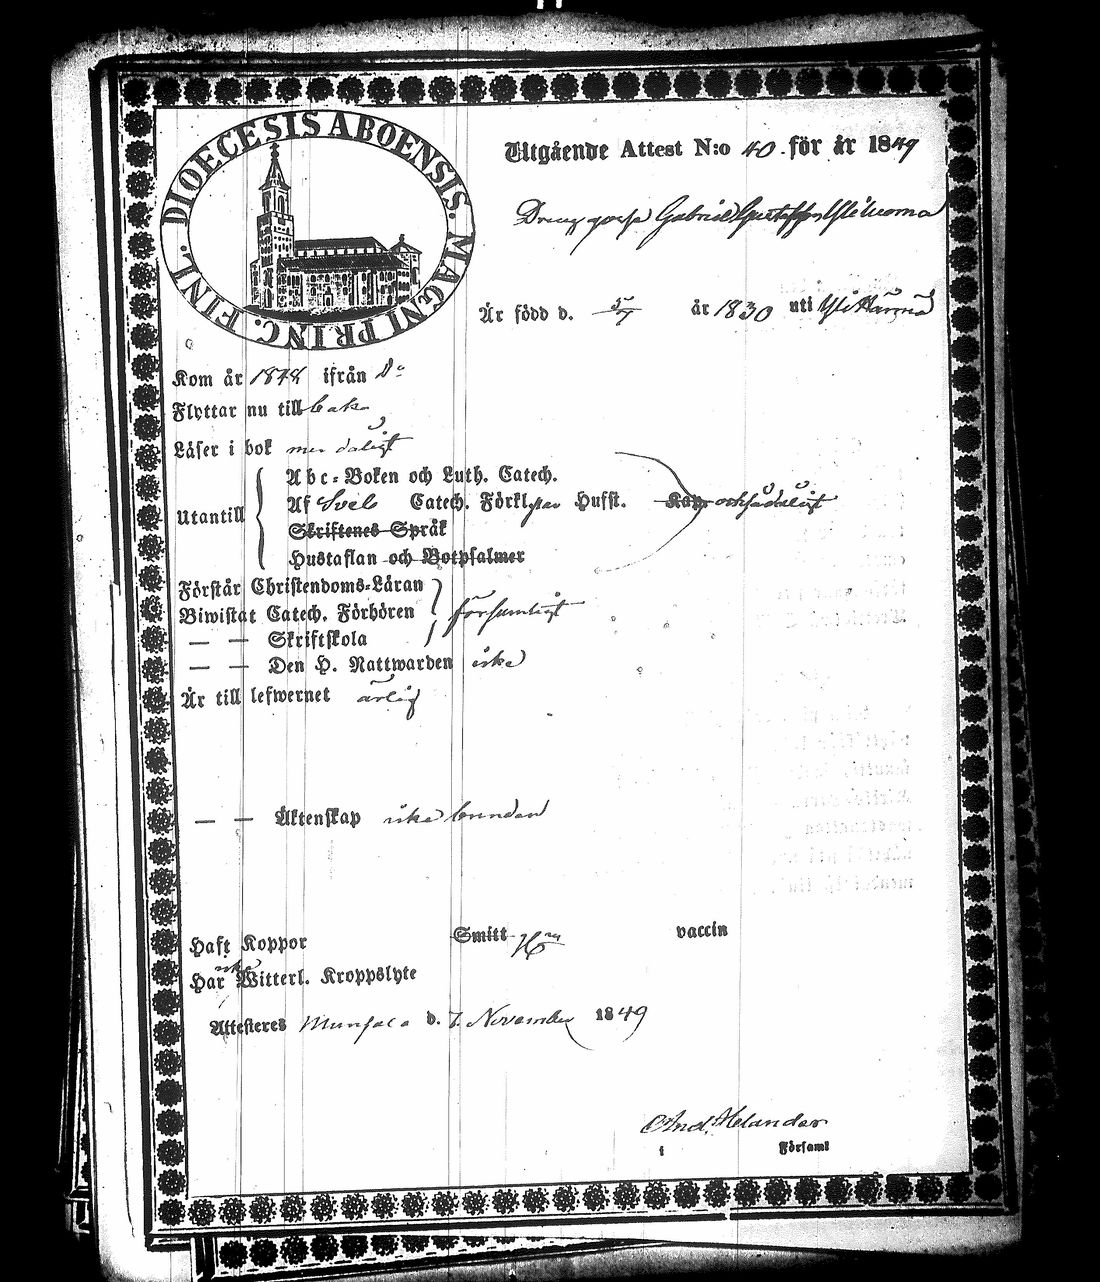 DIOECESIS ABOENSIS. MAGNI PRINC. FINL.
Utgående Attest N:o 40 för år 1849
Gabriel Gustafsson
Är född d. 5/7 år 1830 uti Yli Härmä
Kom år 1848 ifrån Do
Flyttar nu till baka
Läser i bok mer dåligt
Abc-Boken och Luth. Catech.
Utantill
Af Sveb. Catech. Förkl. Husst. Kap. också dåligt
Skriftenes Språk
Hustaflan och Botpsalmer
Förstår Christendoms-Läran
Biwistat Catech. Förhören försumligt
— — Skriftskola
— — Den H. Nattwarden icke
Är till lefwernet ärlig
— — Äktenskap icke bunden
Haft Koppor Smitt vaccin
Har icke Witterl. Kroppslyte
Attesteres Munsala d. 7. November 1849
And. Helander
i Församl